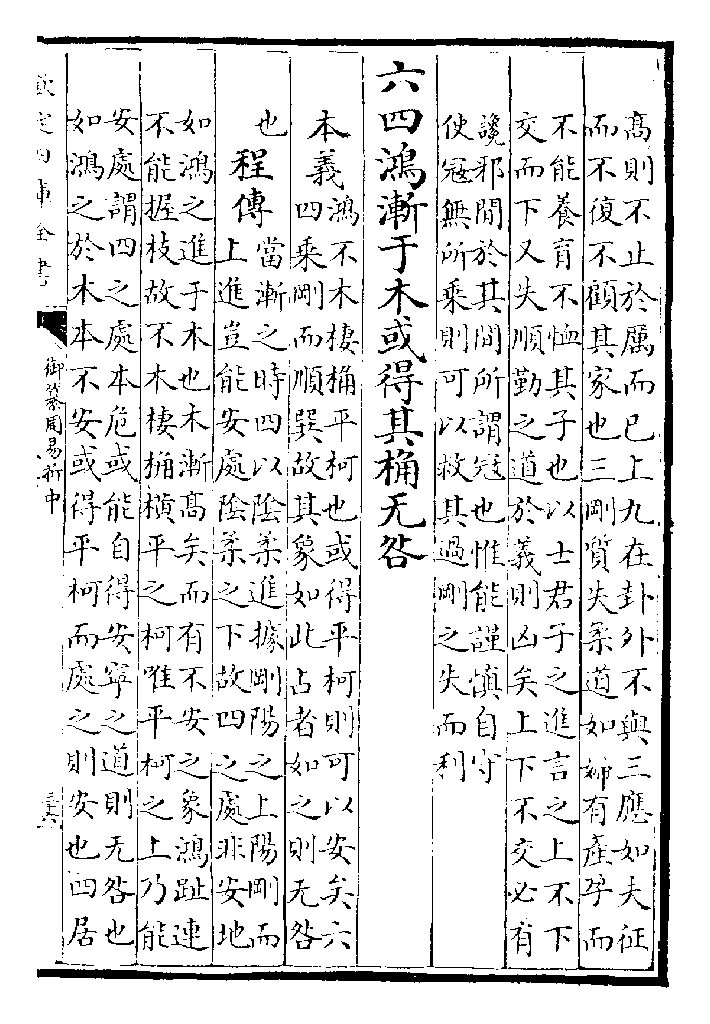 高則不止於厲而已上九在卦外不與三應如夫征
而不復不顧其家也三剛質失柔道如婦有產孕而
不能養育不恤其子也以士君子之進言之上不下
交而下又失順勤之道於義則凶矣上下不交必有
讒邪間於其間所謂冦也惟能謹慎自守
使冦無所乘則可以救其過剛之失而利
六四鴻漸于木或得其桷无咎
本義鴻不木棲桷平柯也或得平柯則可以安矣六
四乘剛而順巽故其象如此占者如之則无咎
也程傳當漸之時四以隂柔進據剛陽之上陽剛而
上進豈能安處隂柔之下故四之處非安地
如鴻之進于木也木漸高矣而有不安之象鴻趾連
不能握枝故不木棲桷橫平之柯唯平柯之上乃能
安處謂四之處本危或能自得安寧之道則无咎也
如鴻之於木本不安或得平柯而處之則安也四居
欽定四庫全書
御纂周易折中
三十六